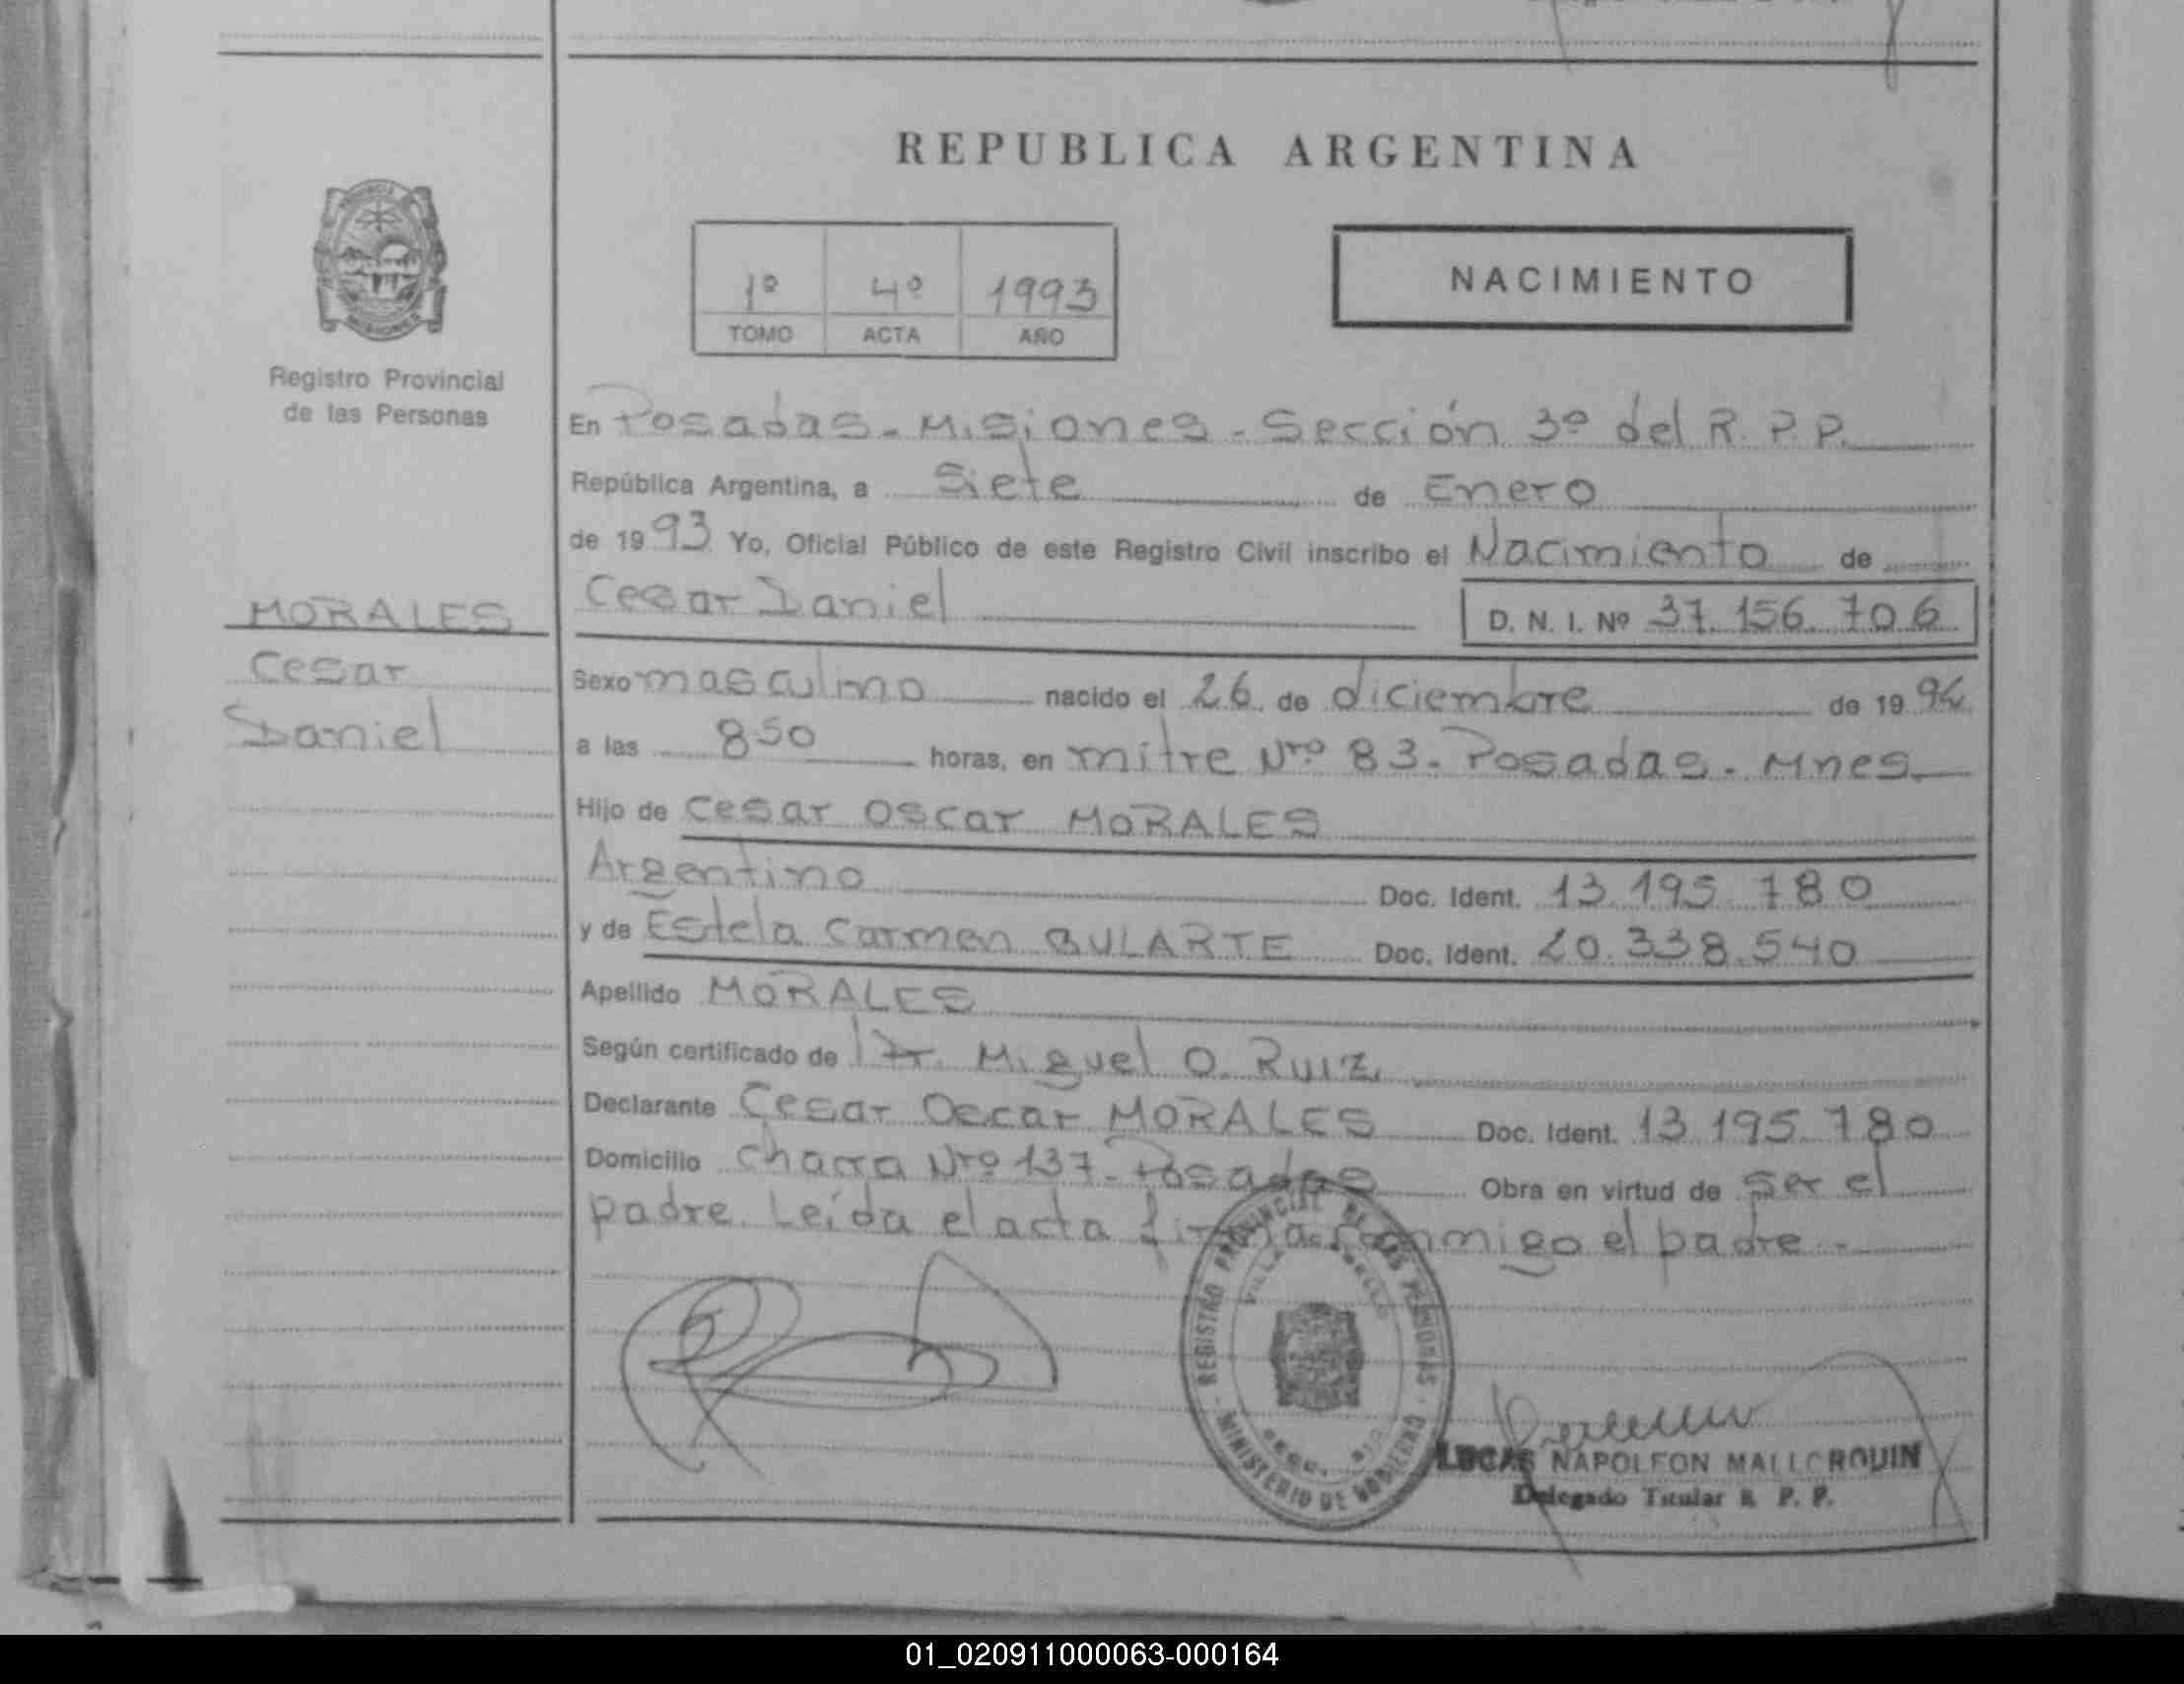 REPUBLICA ARGENTINA
1º 4º 1993
TOMO ACTA AÑO
NACIMIENTO
Registro Provincial
de las Personas
MORALES
Cesar
Daniel
En Posadas - Misiones - Sección 3º del R. P. P.
República Argentina, a Siete de Enero
de 1993 Yo, Oficial Público de este Registro Civil inscribo el Nacimiento de
Cesar Daniel
D. N. I. Nº 37.156.706
Sexo masculino nacido el 26 de diciembre de 19
a las 850 horas, en mitre Nro 83 - Posadas - Mnes.
Hijo de Cesar Oscar MORALES
Argentino Doc. Ident. 13.195.780
y de Estela Carmen BULARTE Doc. Ident. 20.338.540
Apellido MORALES
Según certificado de Dr. Miguel O. Ruiz
Declarante Cesar Oscar MORALES Doc. Ident. 13.195.780
Domicilio chacra Nro 137 - Posadas Obra en virtud de ser el
padre. Leída el acta firma conmigo el padre.-
REGISTRO PROVINCIAL DE LAS PERSONAS
MINISTERIO DE GOBIERNO
LUCAS NAPOLEON MALLORQUIN
Delegado Titular R. P. P.
01_020911000063-000164